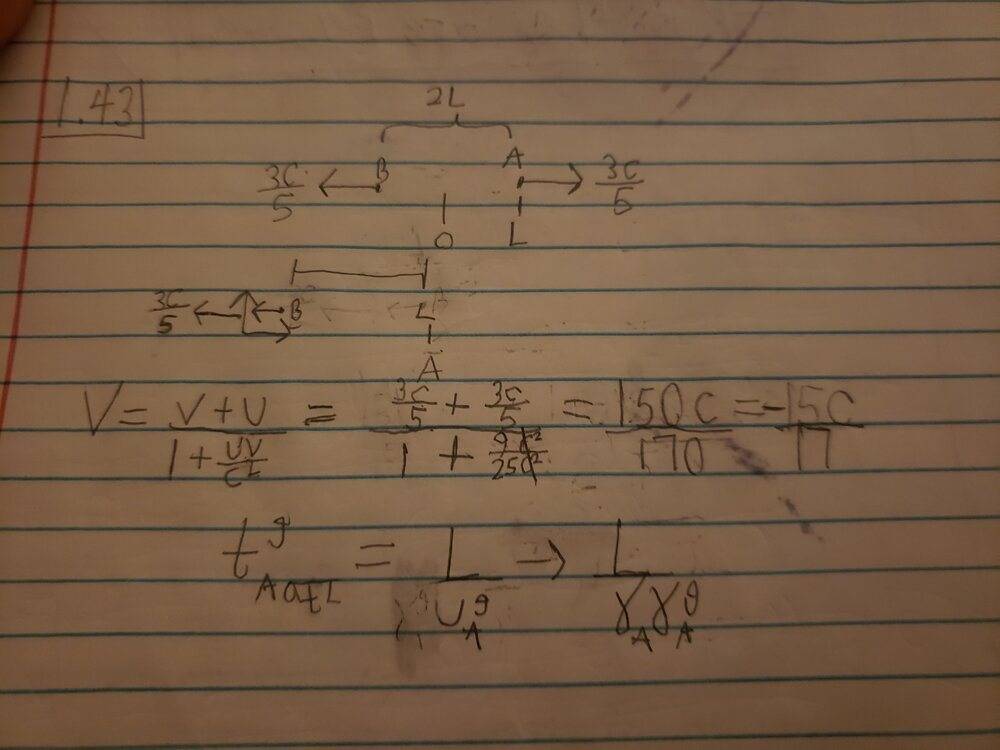 1.43
2L
3C/5 ← B A → 3C/5
O L
3C/5 ← ← B L
A
V = (V+U)/(1+UV/C²) = (3C/5 + 3C/5)/(1 + 9C²/25C²) = 150C/170 = -15C/17
t^g_{A at L} = L/U^g_A → L/(γ_A γ^g_A)